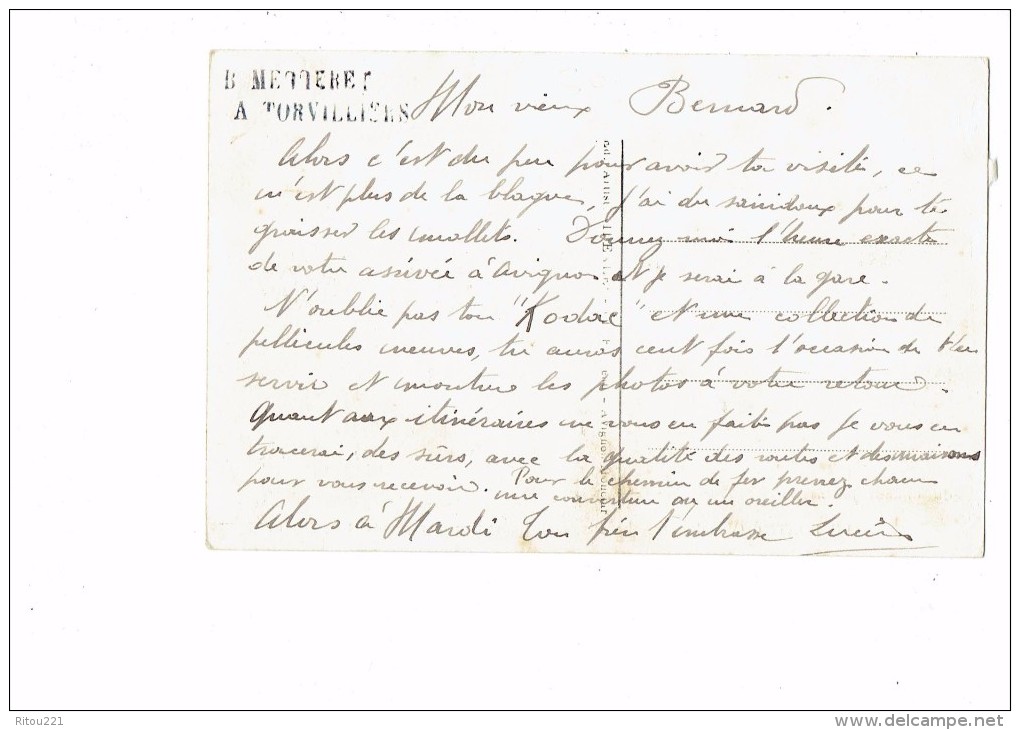 B METTERET
A TORVILLIERS
Mon vieux Bernard.
Alors c'est du peu pour avoir ta visite, ce
n'est plus de la blague, j'ai du saindoux pour te
graisser les mollets. Donnez moi l'heure exacte
de votre arrivée à Avignon et je serai à la gare.
N'oublie pas ton "Kodac" et une collection de
pellicules neuves, tu auras cent fois l'occasion de t'en
servir et montrer les photos à votre retour.
Quant aux itinéraires ne vous en faites pas je vous en
tracerai, des sûrs, avec la qualité des routes et des maisons
pour vous recevoir. Pour le chemin de fer prenez chacun
une couverture ou un oreiller.
Alors à Mardi Ton frère t'embrasse Lucien
Ritou221
www.delcampe.net